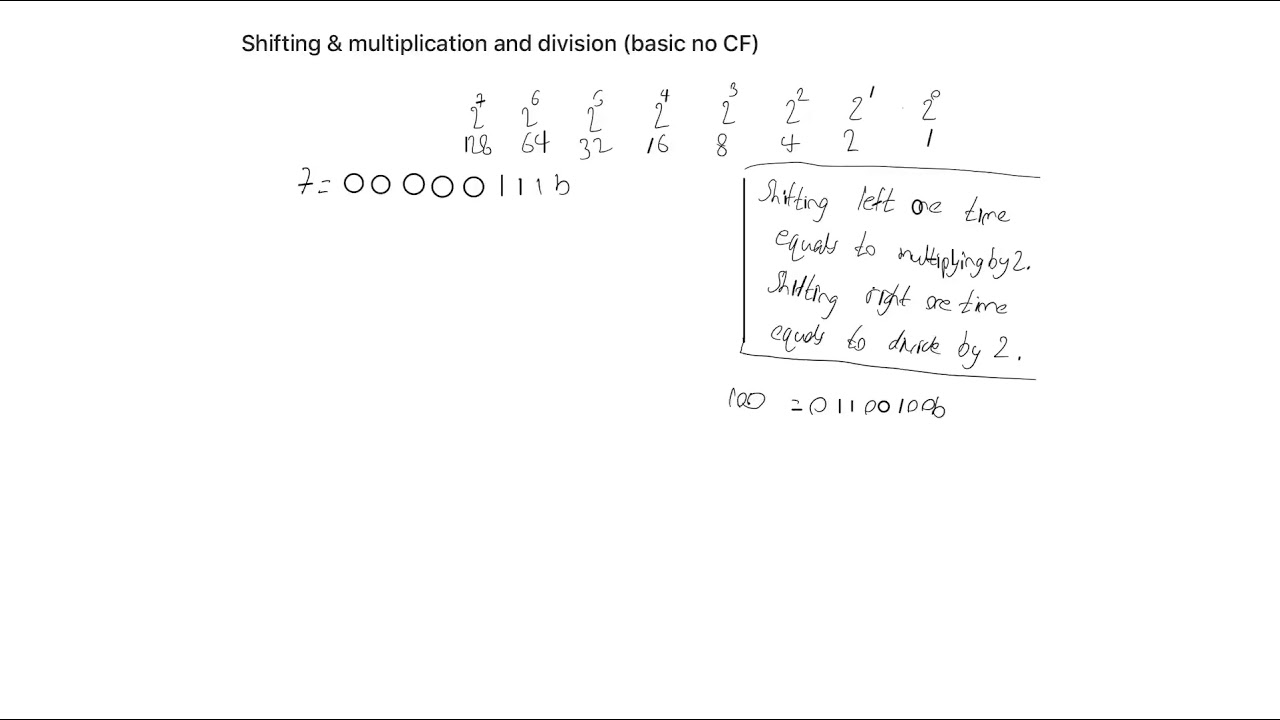 Shifting & multiplication and division (basic no CF)
2⁷ 2⁶ 2⁵ 2⁴ 2³ 2² 2¹ 2⁰
128 64 32 16 8 4 2 1
7 = 00000111b
Shifting left one time
equals to multiplying by 2.
Shifting right one time
equals to divide by 2.
100 = 01100100b